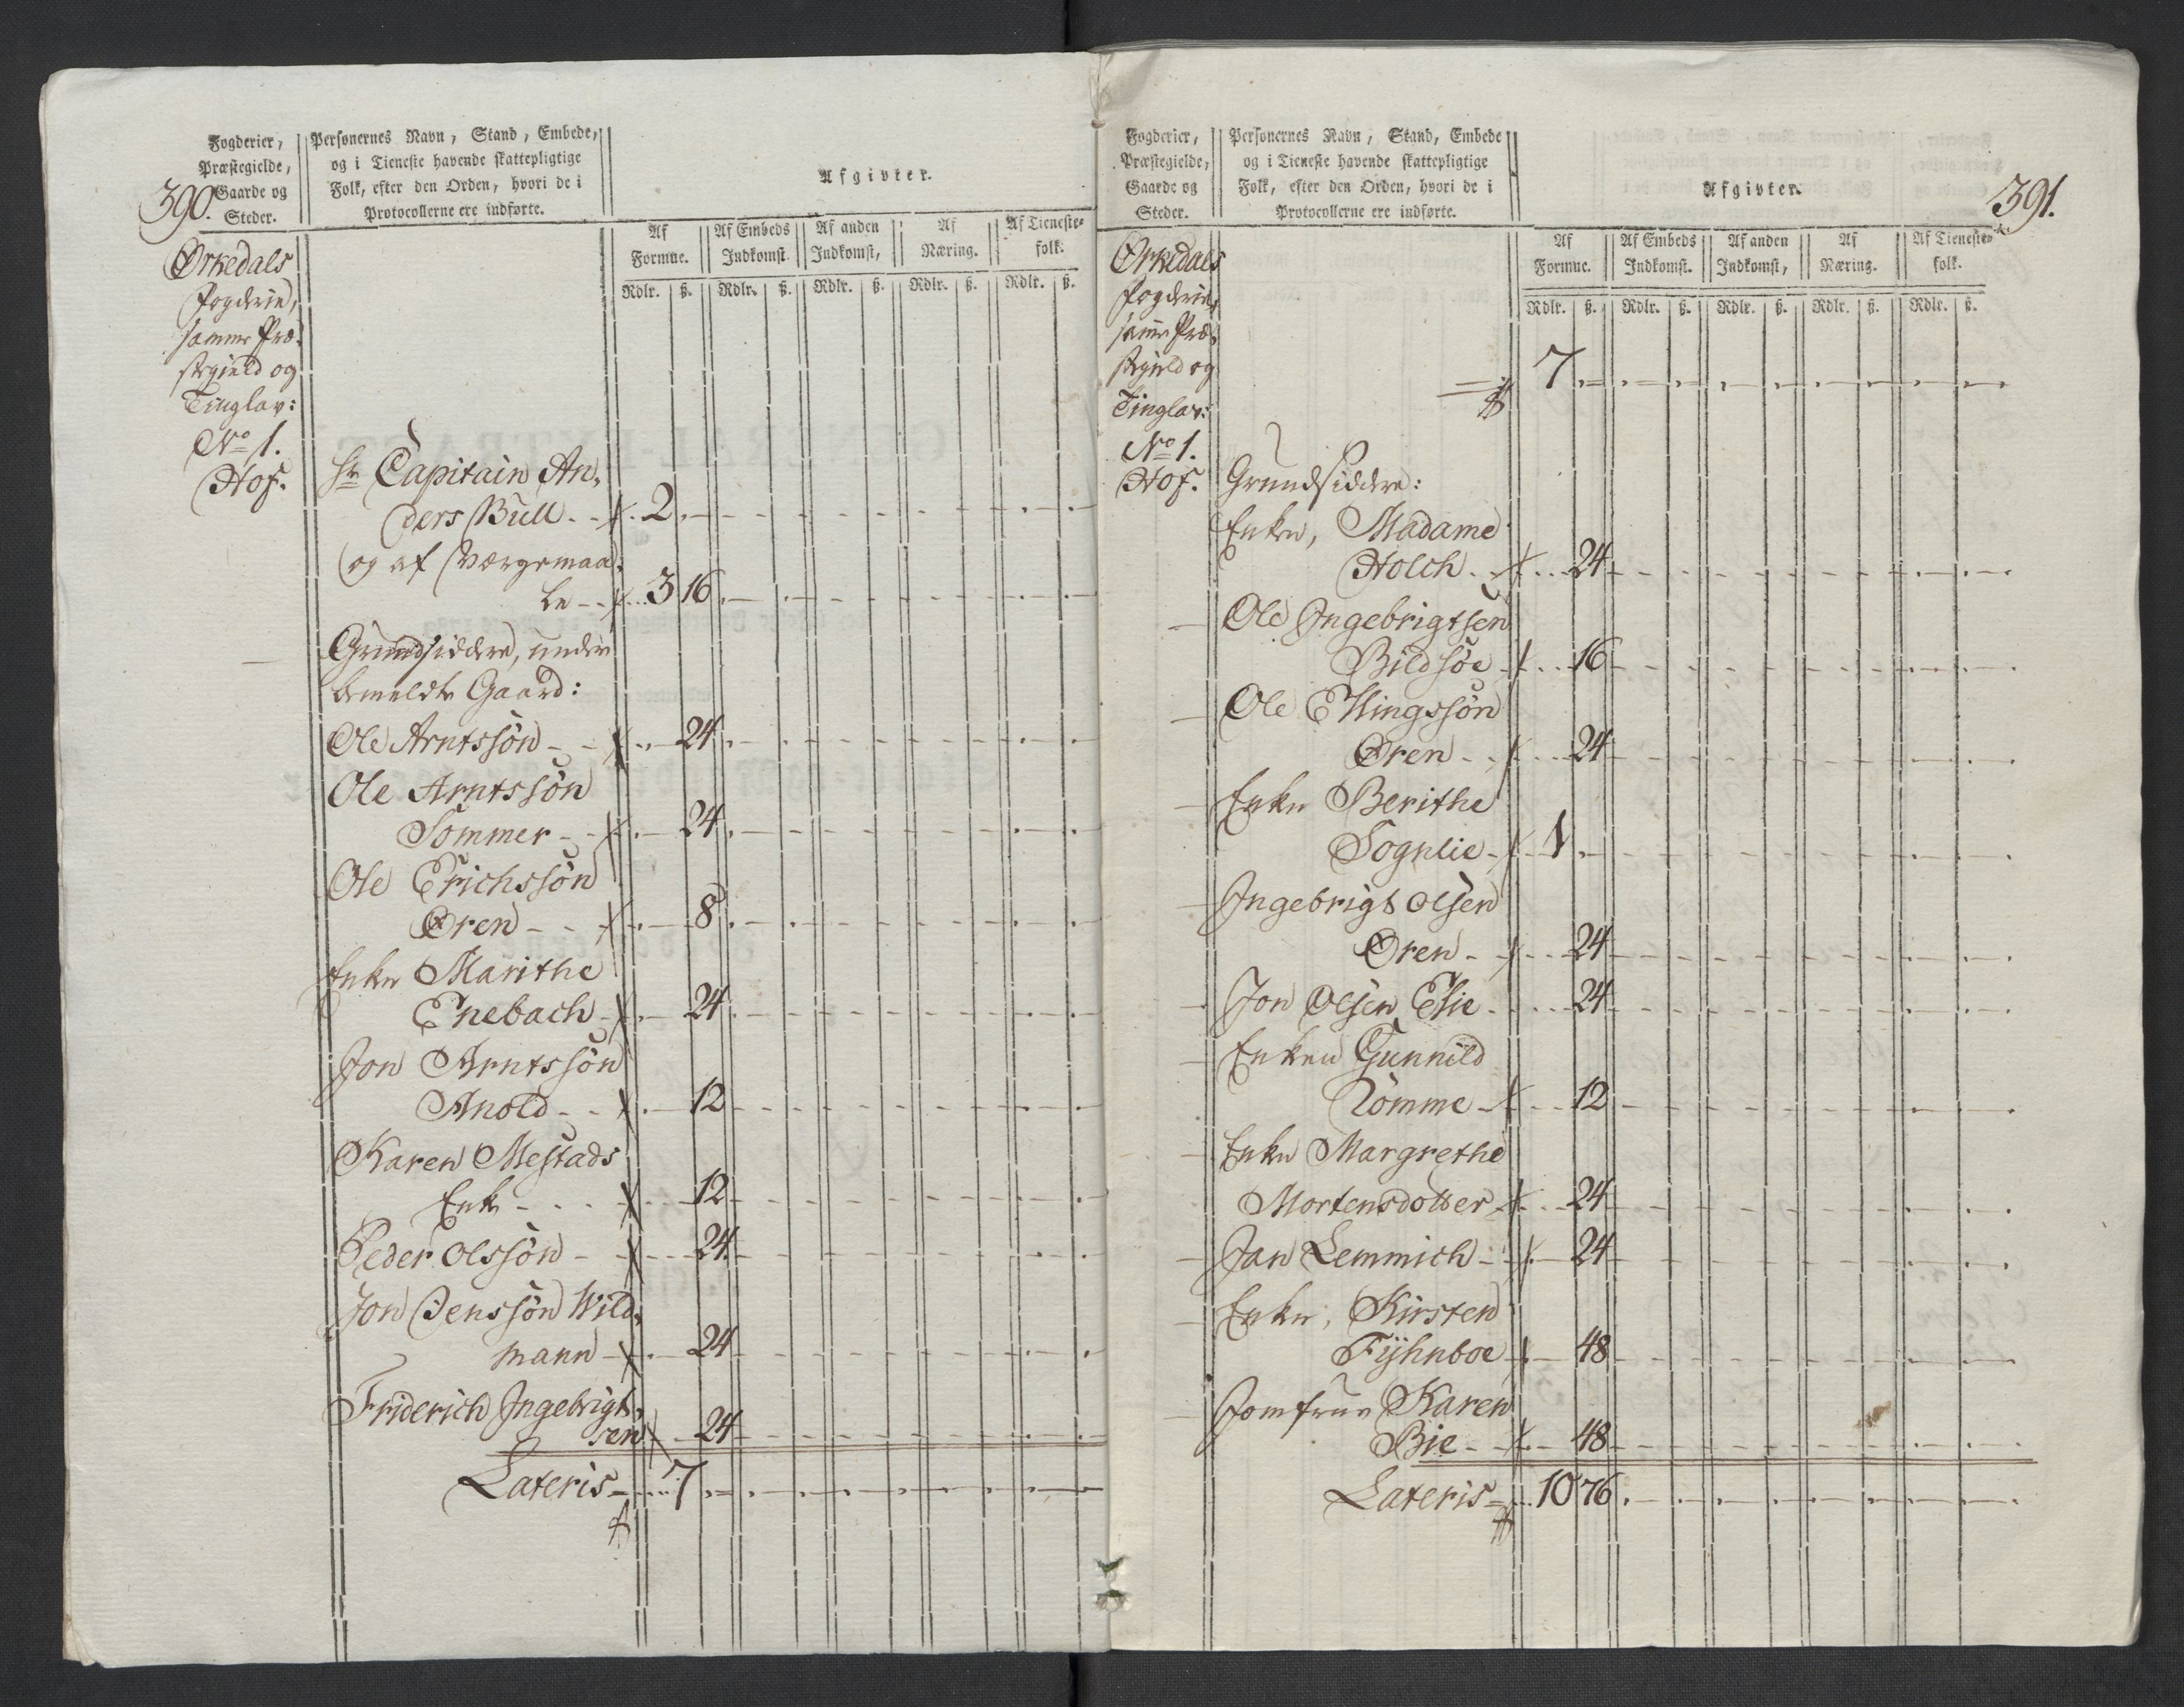 390.
Fogderier,
Præstegielde,
Gaarde og
Steder.
Personernes Navn, Stand, Embede,
og i Tieneste havende skattepligtige
Folk, efter den Orden, hvori de i
Protocollerne ere indførte.
Afgivter.
Af Formue. Af Embeds Indkomst. Af anden Indkomst, Af Næring. Af Tieneste- folk.
Rdlr. ß. Rdlr. ß. Rdlr. ß. Rdlr. ß. Rdlr. ß.
Ørkedals
fogderie,
samme Præ-
stegield og
Tinglav:
No 1.
Hof.
Hr Capitain An-
ders Büll - - 2
og af Værgemaa-
le - - 3 16
Grundsiddere, under
bemeldte Gaard:
Ole Arntssön - - 24
Ole Arntssön
Sommer - - 24
Ole Erichssön
Øren - - - 8
Enke Marithe
Enebach - 24
Jon Arntssön
Anold - - 12
Karen Mestads
Enke - - - 12
Peder Olssön - - 24
Jon Jenssön Wild-
mann - 24
Friderich Ingebrigt-
sen - 24
Lateris - 7
391.
Fogderier,
Præstegielde,
Gaarde og
Steder.
Personernes Navn, Stand, Embede
og i Tieneste havende skattepligtige
Folk, efter den Orden, hvori de i
Protocollerne ere indførte.
Afgivter.
Af Formue. Af Embeds Indkomst. Af anden Indkomst, Af Næring. Af Tieneste- folk.
Rdlr. ß. Rdlr. ß. Rdlr. ß. Rdlr. ß. Rdlr. ß.
Ørkedals
fogderie,
samme Præ-
stegield og
Tinglav:
No 1.
Hof.
7
Grundsiddere:
Enken, Madame
Holch - - 24
Ole Ingebrigtsen
Bildsöe - 16
Ole Ellingssön
Øren - - 24
Enke Berithe
Sognlie - 1
Ingebrigt Olsen
Øren - - 24
Jon Olsen Elie - 24
Enken Gunnild
Römme - 12
Enke Margrethe
Mortensdotter - 24
Jan Lemmich - 24
Enke, Kirsten
Fÿhnboe - 48
Jomfrue Karen
Bie - - 48
Lateris - 10 76